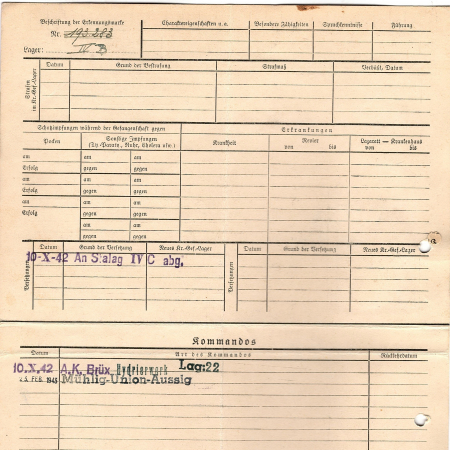 Beschriftung der Erkennungsmarke
Nr. 193203
Lager: IV B
Charaktereigenschaften u.a.
Besondere Fähigkeiten
Sprachkenntnisse
Führung
Strafen im Kr.-Gef.-Lager
Datum
Grund der Bestrafung
Strafmaß
Verbüßt, Datum
Schutzimpfungen während der Gefangenschaft gegen
Erkrankungen
Pocken
Sonstige Impfungen
(Ty.-Paraty., Ruhr, Cholera usw.)
Krankheit
Revier
von bis
Lazarett — Krankenhaus
von bis
am am am
Erfolg gegen gegen
am am am
Erfolg gegen gegen
am am am
Erfolg gegen gegen
am am
gegen gegen
Versetzungen
Datum
Grund der Versetzung
Neues Kr.-Gef.-Lager
Versetzungen
Datum
Grund der Versetzung
Neues Kr.-Gef.-Lager
10-X-42 An Stalag IV C abg.
Kommandos
Datum
Art des Kommandos
Rückkehrdatum
10.X.42 A.K. Brüx Hydrierwerk Lag:22
FEB. 1943 Mühlig-Union-Aussig